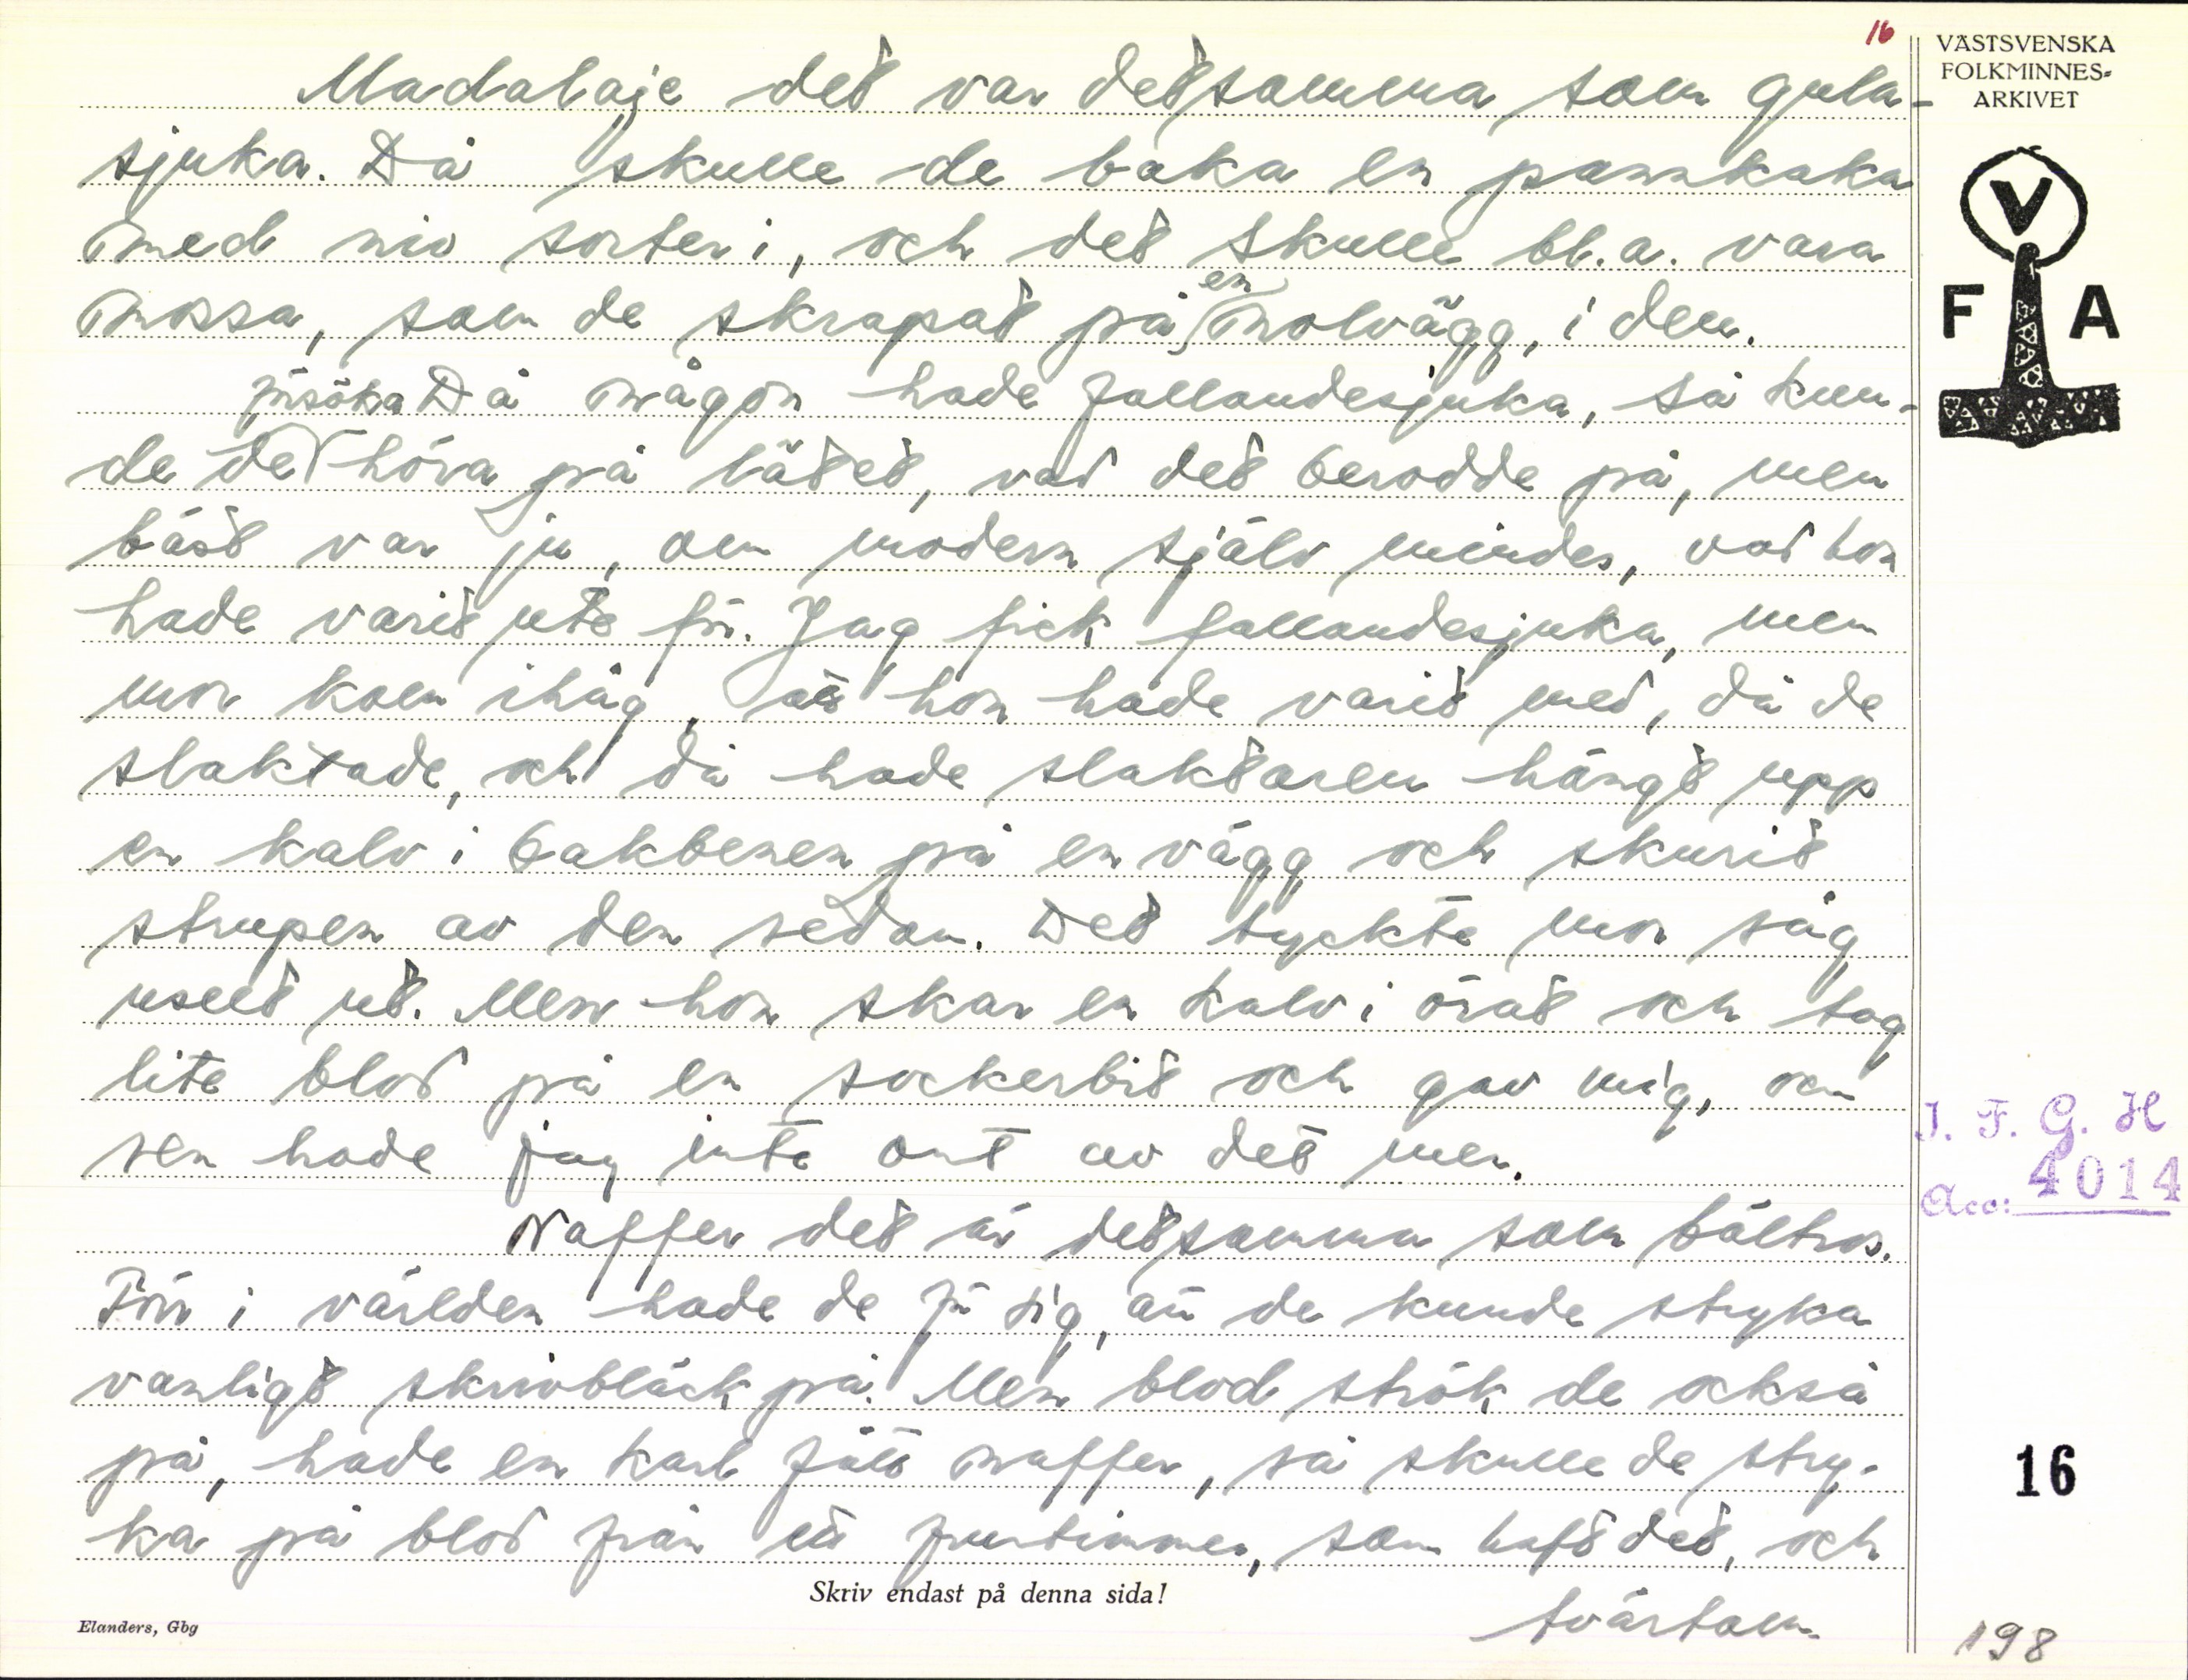 16
VÄSTSVENSKA
FOLKMINNES-
ARKIVET
V
F A
Madalaje det var detsamma som gula-
sjuka. Då skulle de baka en pannkaka
med nio sorter i, och det skulle bl.a. vara
mossa, som de skrapat på en nolvägg, i den.
Då någon hade fallandesjuka, så kun-
de de försöka höra på lätet, vad det berodde på, men
bäst var ju, om modern själv mindes, vad hon
hade varit ute för. Jag fick fallandesjuka, men
mor kom ihåg, att hon hade varit med, då de
slaktade, och då hade slaktaren hängt upp
en kalv i bakbenen på en vägg och skurit
strupen av den sedan. Det tyckte mor såg
uselt ut. Men hon skar en kalv i örat och tog
lite blod på en sockerbit och gav mig, och
sen hade jag inte ont av det mer.
Naffer det är detsamma som bältros.
Förr i världen hade de för sig, att de kunde stryka
vanligt skrivbläck på. Men blod strök de också
på, hade en karl fått naffer, så skulle de stry-
ka på blod från ett fruntimmer, som haft det, och
tvärtom.
Skriv endast på denna sida!
Elanders, Gbg
I. F. G. H
Acc: 4014
16
198